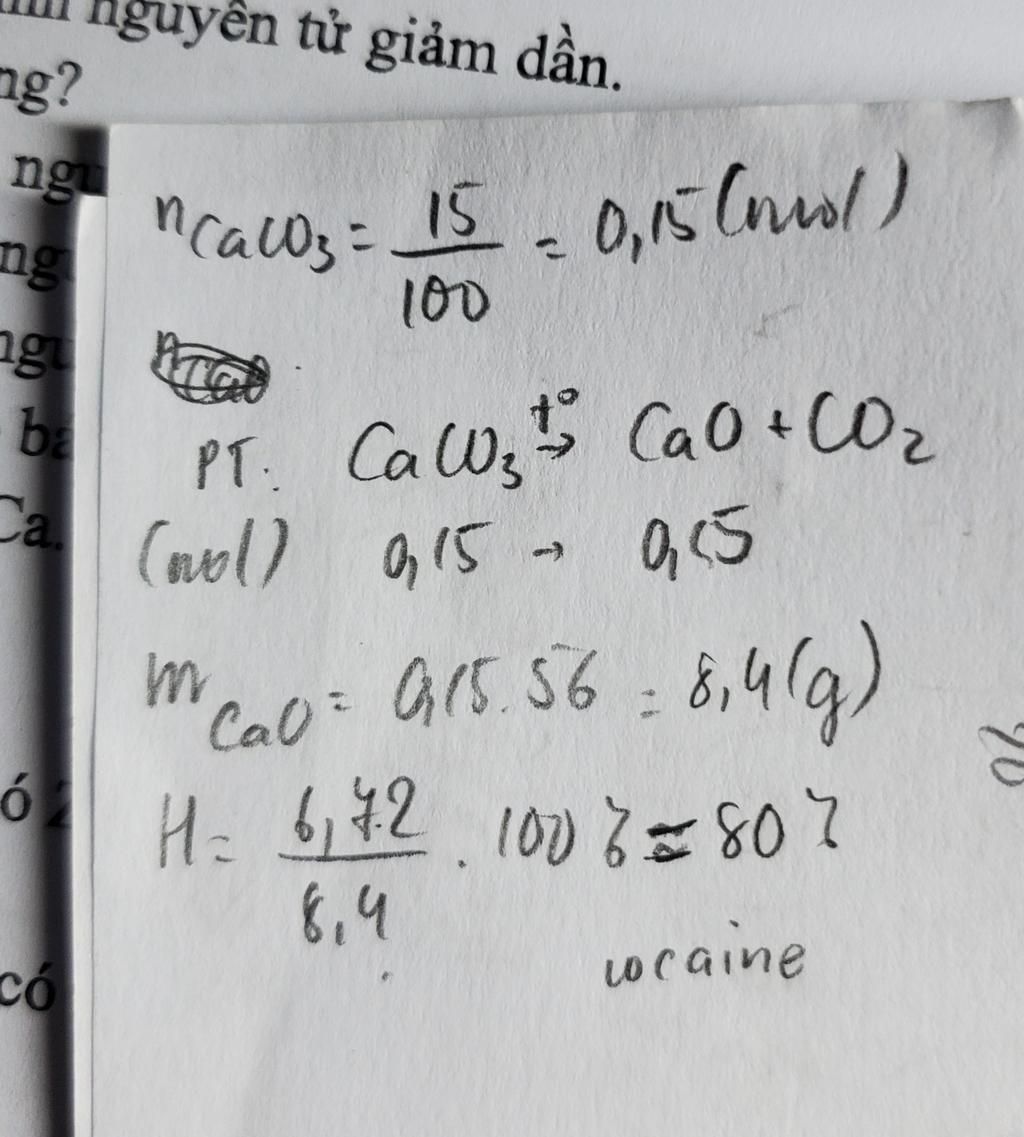 nguyên tử giảm dần.
ng?
ngu
ng
ngu
ba
Ca.
ó 2
có
nCaCO3 = 15/100 = 0,15 (mol)
PT: CaCO3 t°→ CaO + CO2
(mol) 0,15 → 0,15
mCaO = 0,15.56 = 8,4 (g)
H = 6,72/8,4 . 100% = 80%
cocaine